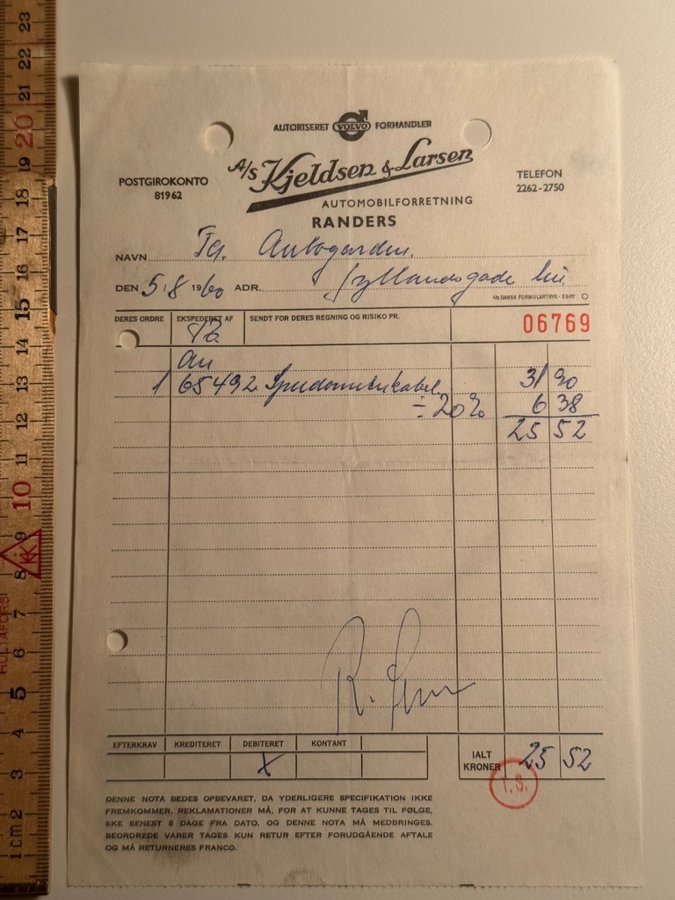 AUTORISERET VOLVO FORHANDLER
A/S Kjeldsen & Larsen
AUTOMOBILFORRETNING
RANDERS
POSTGIROKONTO
81962
TELEFON
2262-2750
NAVN Fa. Autogarden.
DEN 5/8 1960 ADR. Jyllandsgade
A/S DANSK FORMULARTRYK - EGBY
DERES ORDRE EKSPEDERET AF SENDT FOR DERES REGNING OG RISIKO PR.
06769
an
1 65492 31 90
÷ 20% 6 38
25 52
EFTERKRAV KREDITERET DEBITERET KONTANT
X
IALT KRONER 25 52
DENNE NOTA BEDES OPBEVARET, DA YDERLIGERE SPECIFIKATION IKKE
FREMKOMMER. REKLAMATIONER MÅ, FOR AT KUNNE TAGES TIL FØLGE,
SKE SENEST 8 DAGE FRA DATO, OG DENNE NOTA MÅ MEDBRINGES.
BEORDREDE VARER TAGES KUN RETUR EFTER FORUDGÅENDE AFTALE
OG MÅ RETURNERES FRANCO.
HULTAFORS
1cm 2 3 4 5 6 7 8 9 10 11 12 13 14 15 16 17 18 19 20 21 22 23